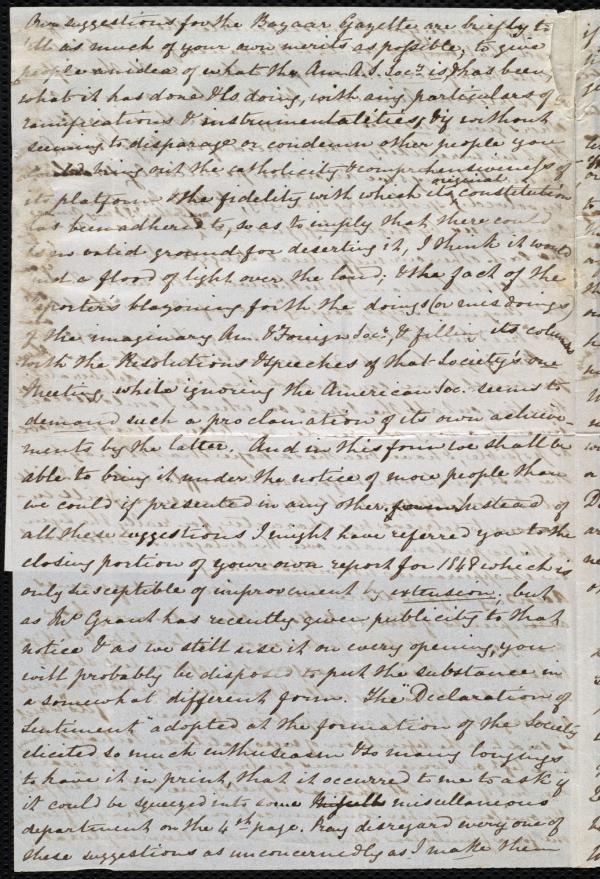 Our suggestions for the Bazaar Gazette are briefly to
tell as much of your own merits as possible, to give
people an idea of what the Am. A. S. Socy is & has been,
what it has done & is doing, with any particulars of
ramifications & instrumentalities, & if without
seeming to disparage or condemn other people you
bring out the catholicity & comprehensiveness of
its platform & the fidelity with which its original constitution
has been adhered to, so as to imply that there could
be no valid ground for deserting it, I think it would
a flood of light over the land; & the fact of the
Reporters blazoning forth the doings (or misdoings)
of the imaginary Am. & Foreign Socy, & filling its columns
with the Resolutions & speeches of that Society's one
Meeting, while ignoring the American Soc. seems to
demand such a proclamation of its own achieve-
ments by the latter. And in this form we shall be
able to bring it under the notice of more people than
we could if presented in any other form. Instead of
all these suggestions I might have referred you to the
closing portion of your own report for 1848 which is
only susceptible of improvement by extension, but
as Mr Grant has recently given publicity to that
notice & as we still use it on every opening, you
will probably be disposed to put the substance in
a somewhat different form. The "Declaration of
Sentiment" adopted at the formation of the Society
elicited so much enthusiasm & so many longings
to have it in print, that it occurred to me to ask if
it could be squeezed into some miscellaneous
department on the 4th page. Pray disregard every one of
these suggestions as unconcernedly as I make them